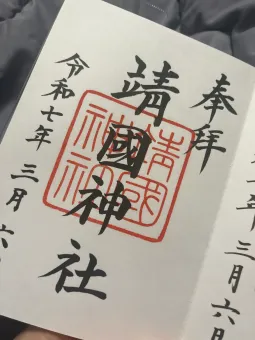 奉拝
靖國神社
靖國神社
令和七年三月六
年三月六日